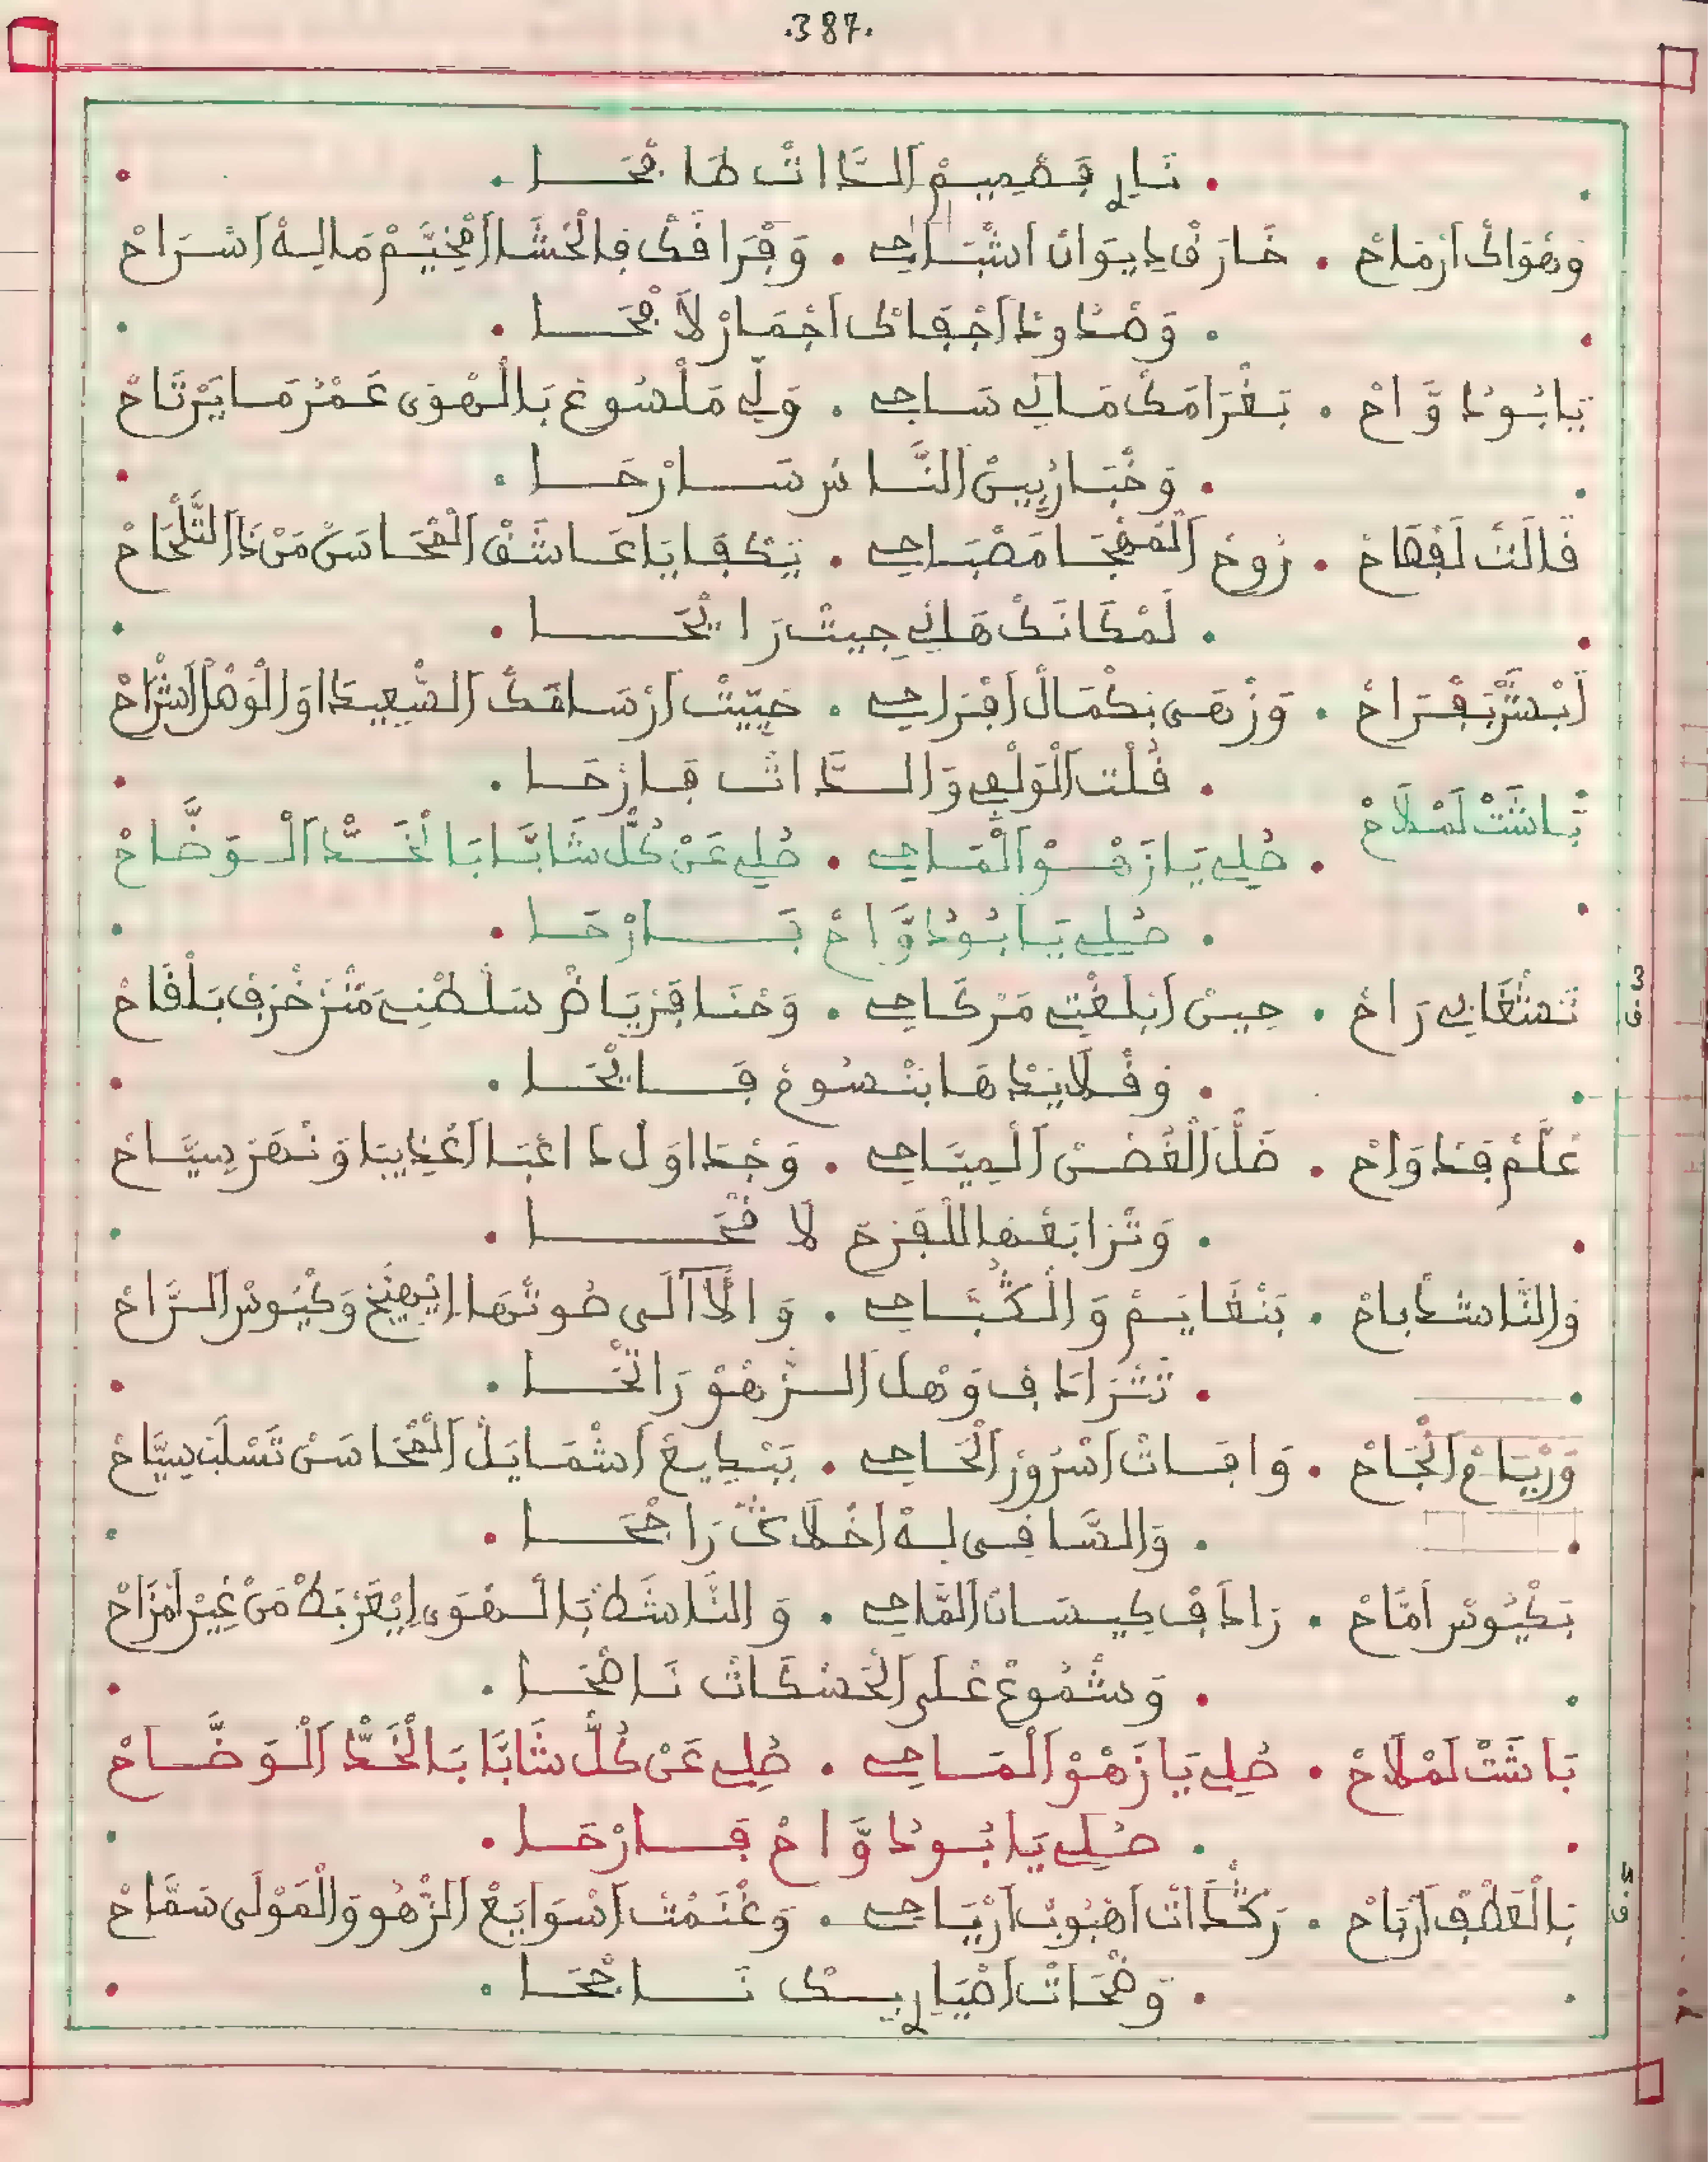 .387.
نَارِ فَصْمِيمْ الذَّاتْ طَافْحَا
وَهْوَاكْ أَرْمَاحْ . خَارَقْ دِيوَانْ اشْبَاحِي . وَفْرَاقَكْ فِالْحْشَا امْخِيَّمْ مَالِيهْ اسْرَاحْ
وَصْدُودْ اجْفَاكْ اجْمَارْ لَافْحَا
يَابُودُوَّاحْ . بَغْرَامَكْ مَالِي سَاحِي . وَلِّي مَلْسُوعْ بَالْهْوَى عَمْرُ مَا يَرْتَاحْ
وَخْبَارُ بِينْ النَّاسْ سَارْحَا
قَالَتْ لَفْصَاحْ . رُوحْ الْمُهْجَا مَصْبَاحِي . يَكْفَا يَاعَاشَقْ الْمْحَاسَنْ مَنْ ذَا التَّلْحَاحْ
لَمْكَانَكْ هَانِي جِيتْ رَايْحَا
أَبْشَرْ بَفْرَاحْ . وَزْهَى بَكْمَالْ افْرَاحِي . حَيِّيتْ ارْسَامَكْ السْعِيدَا وَالْوَصْلْ اشْرَاحْ
قُلْتْ الْوَلْفِي وَالذَّاتْ فَارْحَا
بَاشَتْ لَمْلَاحْ . صُلِي يَا زَهْوْ الْمَاحِي . صُلِي عَنْ كُلّْ شَابَّا بَالْخَدّْ الْوَضَّاحْ
صُلِي يَا بُودُوَّاحْ بَارْحَا
نَسْتْغَانِي رَاحْ . حِينْ ابْلَغْتِي مَرْكَاحِي . وَحْنَا فَرْيَاضْ سَلْطْنِي مَتْزَخْرَفْ بَلْقَاحْ
وَقْلَايَدْهَا بَنْسُوعْ فَايْحَا
عَلَّمْ فَدْوَاحْ . ظَلّْ الْغُصْنْ الْمِيَّاحِي . وَجْدَاوَلْ دَاغْبَا اعْذِيبَا وَنْهَرْ سِيَّاحْ
وَتْرَابَعْهَا لَلْفَرْحْ لَاقْحَا
وَالنَّاشْدْ بَاحْ . بَنْغَايَمْ وَالْكْبَاحِي . وَالَّالَى صُوتْهَا إِيْهِيَّجْ وَكْيُوسْ الرَّاحْ
تَتْرَادَفْ وَهْلْ الزْهُو رَايْحَا
وَرْيَاحْ الْجَاحْ . وَاقَاتْ اسْرُورْ الْحَاحِي . بَبْدِيعْ اشْمَايَلْ الْمْحَاسَنْ تَسْلَبْ سِيَّاحْ
وَالسَّاقِى لِهْ اخْلَاقْ رَاجْحَا
بَكْيُوسْ امَّاحْ . رَادَفْ كِيسَانْ الْمَاحِي . وَالنَّاشَطْ بَالْهْوَى إِيْعَرْبَطْ مَنْ غِيرْ امْزَاحْ
وَشْمُوعْ عْلَى الْحَسْكَاتْ نَاصْحَا
بَاشَتْ لَمْلَاحْ . صُلِي يَا زَهْوْ الْمَاحِي . صُلِي عَنْ كُلّْ شَابَّا بَالْخَدّْ الْوَضَّاحْ
صُلِي يَا بُودُوَّاحْ فَارْحَا
بَالْعَطْفْ ارْيَاحْ . رَكْدَاتْ اهْبُوبْ ارْيَاحِي . وَغْنَمْتْ اسْوَايَعْ الزْهُو وَالْمَوْلَى سَمَّاحْ
وَضْحَاتْ اضْيَارِيكْ نَاجْحَا